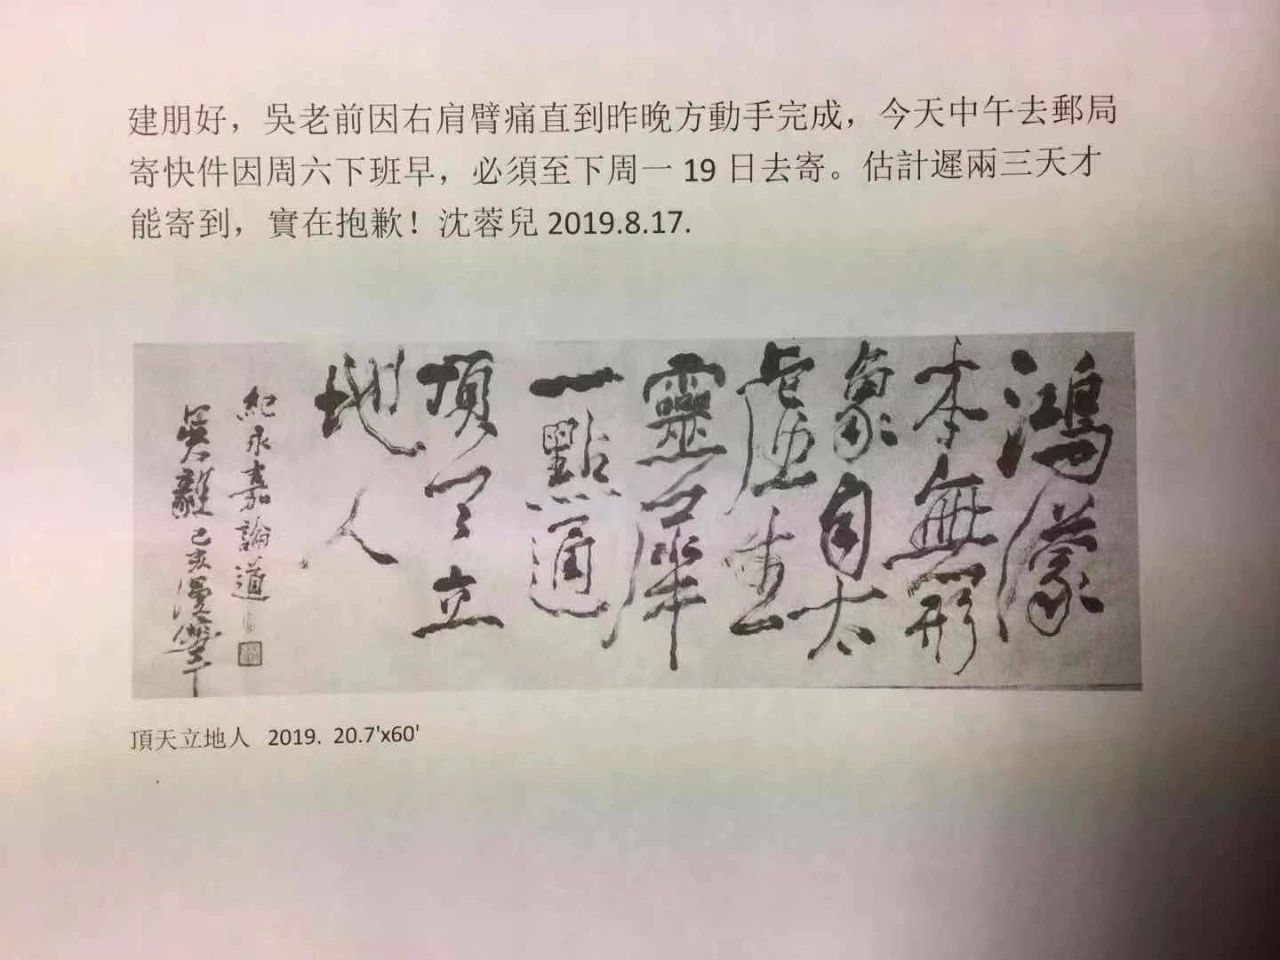 建朋好，吳老前因右肩臂痛直到昨晚方動手完成，今天中午去郵局
寄快件因周六下班早，必須至下周一 19 日去寄。估計遲兩三天才
能寄到，實在抱歉！沈蓉兒 2019.8.17.
鴻濛
本無形
象自太
虛生
靈犀
一點通
頂天立
地人
紀永嘉論道
吳龘己亥漫筆
頂天立地人 2019. 20.7'x60'